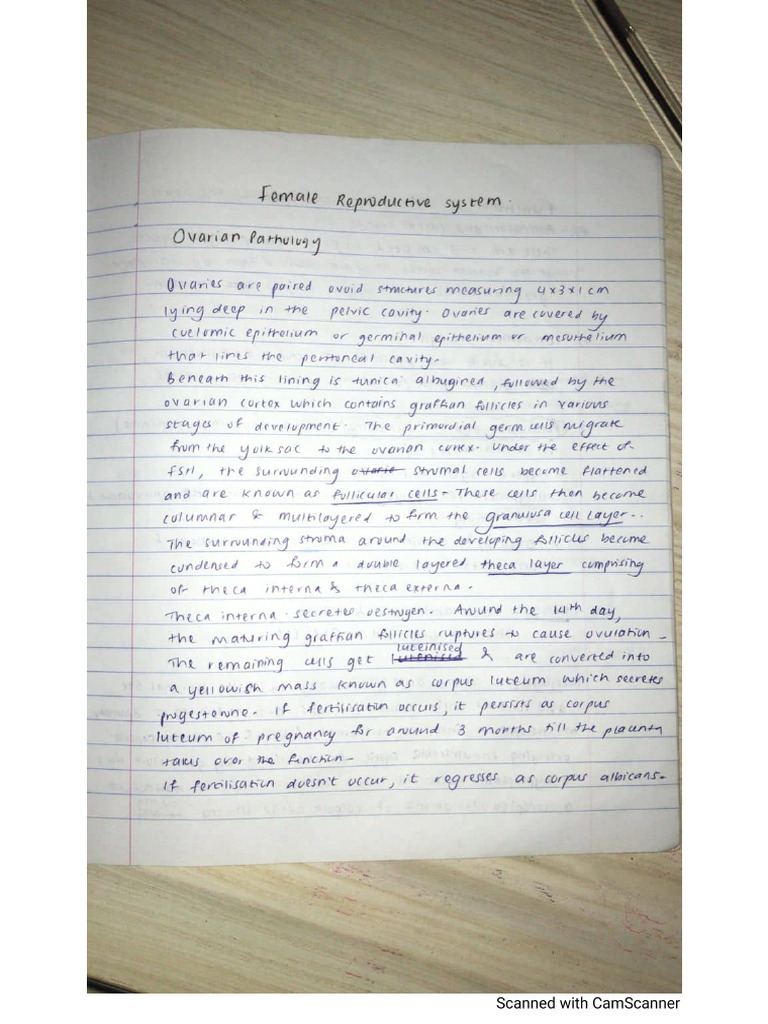 Female Reproductive system.
Ovarian Pathology
Ovaries are paired ovoid structures measuring 4x3x1 cm
lying deep in the pelvic cavity. Ovaries are covered by
cuelomic epithelium or germinal epithelium or mesothelium
that lines the peritoneal cavity.
Beneath this lining is tunica albuginea, followed by the
ovarian cortex which contains graffian follicles in various
stages of development. The primordial germ cells migrate
from the yolk sac to the ovarian cortex. Under the effect of
FSH, the surrounding ovarie stromal cells become flattened
and are known as follicular cells. These cells then become
columnar & multilayered to form the granulosa cell layer..
The surrounding stroma around the developing follicles become
condensed to form a double layered theca layer comprising
of theca interna & theca externa.
Theca interna secretes oestrogen. Around the 14th day,
the maturing graffian follicles ruptures to cause ovulation.
The remaining cells get luteinised & are converted into
a yellowish mass known as corpus luteum which secretes
progesterone. If fertilisation occurs, it persists as corpus
luteum of pregnancy for around 3 months till the placenta
takes over the function.
If fertilisation doesn't occur, it regresses as corpus albicans.
Scanned with CamScanner